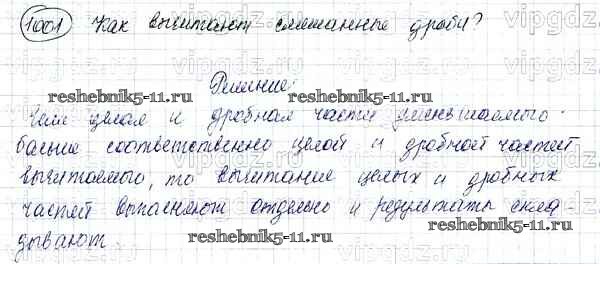 1001 Как вычитают смешанные дроби?
Решение:
reshebnik5-11.ru reshebnik5-11.ru
Если целая и дробная части уменьшаемого
больше соответственно целой и дробной частей
вычитаемого, то вычитание целых и дробных
частей выполняют отдельно и результаты скла-
дывают.
reshebnik5-11.ru
reshebnik5-11.ru
vipgdz.ru